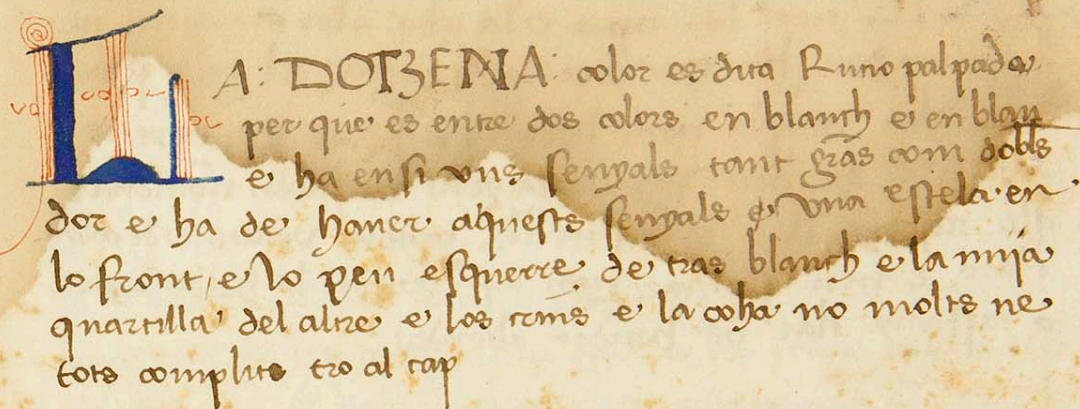 LA: DOTZENA: color es dita Rucio palpado
per que es entre dos colors en blanch e en blau
e ha en si uns senyals tant grãs com dobls
dor e ha de haver aquests senyals e una estela en
lo front, e lo peu esquerre de tras blanch e la mija
quartilla del altre e los crins e la coha no molts ne
tots complits tro al cap